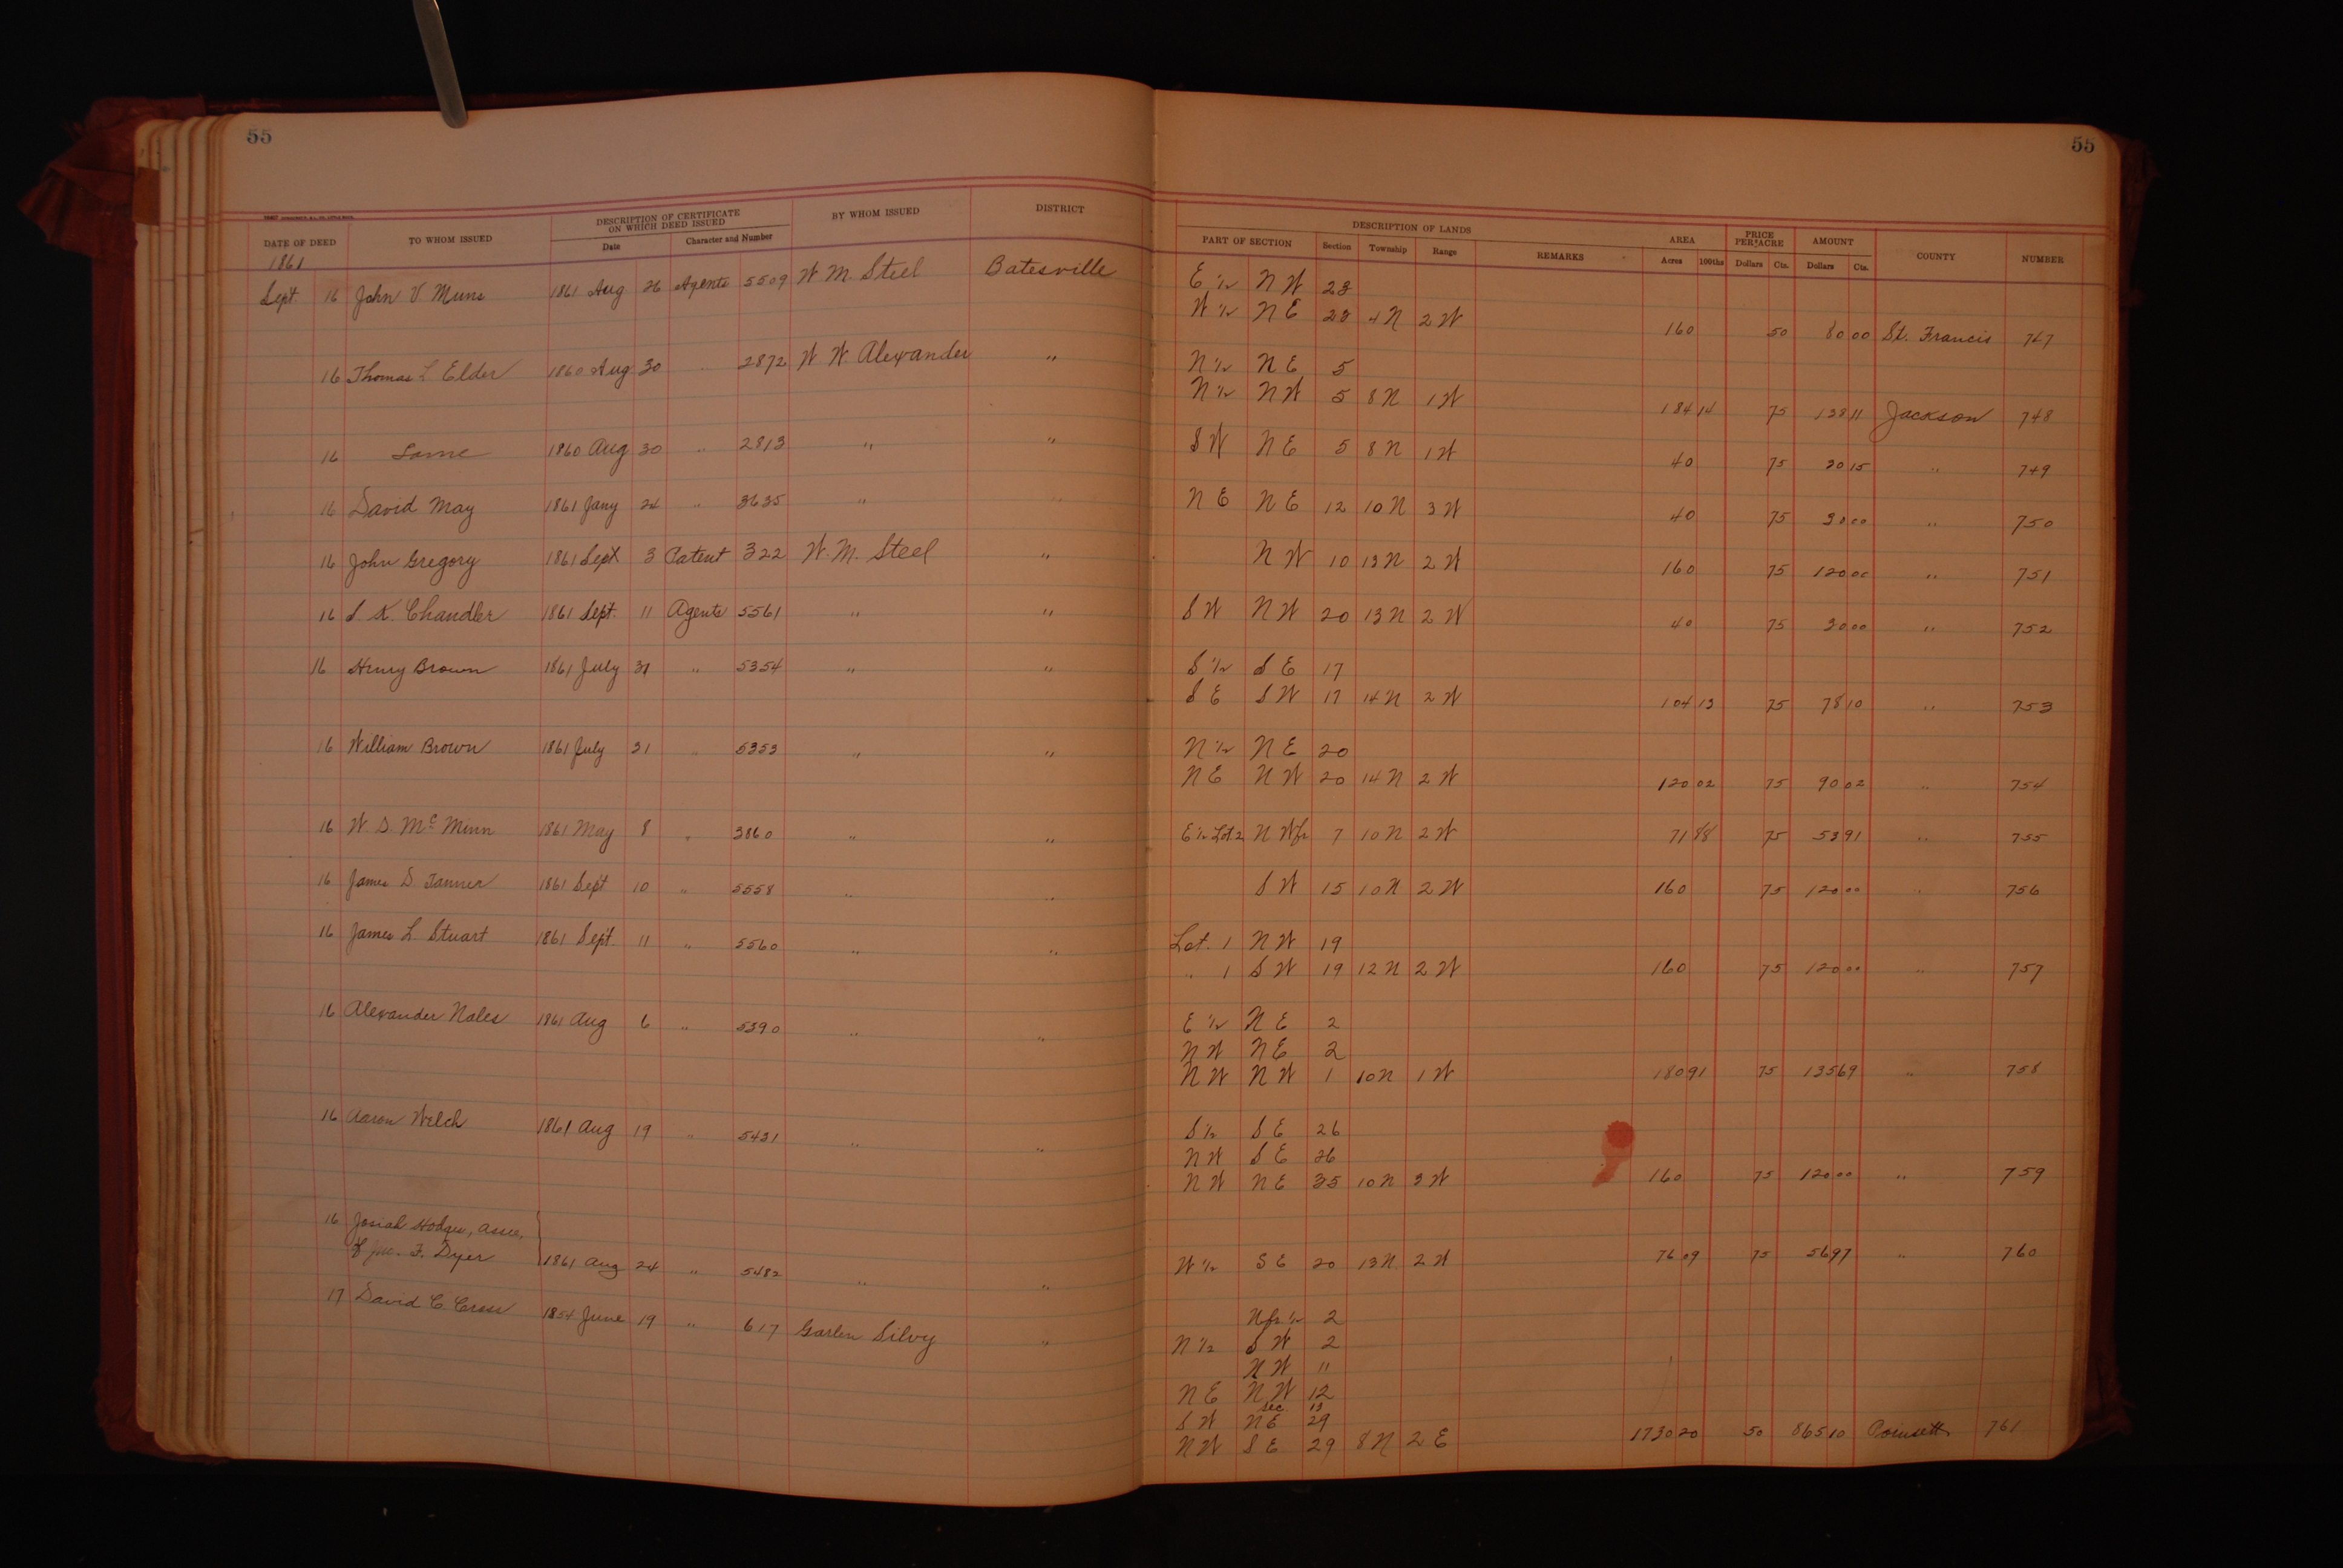 55
55
DATE OF DEED TO WHOM ISSUED DESCRIPTION OF CERTIFICATE ON WHICH DEED ISSUED BY WHOM ISSUED DISTRICT DESCRIPTION OF LANDS AREA PRICE PER ACRE AMOUNT COUNTY NUMBER
Date Character and Number PART OF SECTION Section Township Range REMARKS Acres 100ths Dollars Cts. Dollars Cts.
1861
Sept 16 John V. Muns 1861 Aug 26 Agents 5509 W. M. Steel Batesville E 1/2 N W 28
W 1/2 N E 28 4 N 2 W 160 50 80 00 St. Francis 747
16 Thomas L Elder 1860 Aug 30 " 2872 W. W. Alexander " N 1/2 N E 5
N 1/2 N W 5 8 N 1 W 184 14 75 138 11 Jackson 748
16 Same 1860 Aug 30 " 2813 " " S W N E 5 8 N 1 W 40 75 30 15 " 749
16 David May 1861 Jany 24 " 3635 " " N E N E 12 10 N 3 W 40 75 30 00 " 750
16 John Gregory 1861 Sept 3 Patent 322 W. M. Steel " N W 10 13 N 2 W 160 75 120 00 " 751
16 S. K. Chandler 1861 Sept. 11 Agents 5561 " " S W N W 20 13 N 2 W 40 75 30 00 " 752
16 Henry Brown 1861 July 31 " 5354 " " S 1/2 S E 17
S E S W 17 14 N 2 W 104 13 75 78 10 " 753
16 William Brown 1861 July 31 " 5353 " " N 1/2 N E 20
N E N W 20 14 N 2 W 120 02 75 90 02 " 754
16 W. S. Mc Minn 1861 May 8 " 3860 " " E 1/2 Lot 2 N W fr 7 10 N 2 W 71 88 75 53 91 " 755
16 James S. Tanner 1861 Sept 10 " 5558 " " S W 15 10 N 2 W 160 75 120 00 " 756
16 James L. Stuart 1861 Sept. 11 " 5560 " " Lot. 1 N W 19
" 1 S W 19 12 N 2 W 160 75 120 00 " 757
16 Alexander Nales 1861 Aug 6 " 5390 " " E 1/2 N E 2
N W N E 2
N W N W 1 10 N 1 W 180 91 75 135 69 " 758
16 Aaron Welch 1861 Aug 19 " 5431 " " S 1/2 S E 26
N W S E 26
N W N E 35 10 N 3 W 160 75 120 00 " 759
16 Josiah Hodges, Assee,
of Jno. F. Dyer 1861 Aug 24 " 5482 " " W 1/2 S E 20 13 N 2 W 76 09 75 56 97 " 760
17 David C. Cross 1854 June 19 " 617 " N fr 1/2 2
N 1/2 S W 2
N W 11
N E N W 12
Sec 13
S W N E 29
N W S E 29 8 N 2 E 1730 20 50 865 10 Poinsett 761